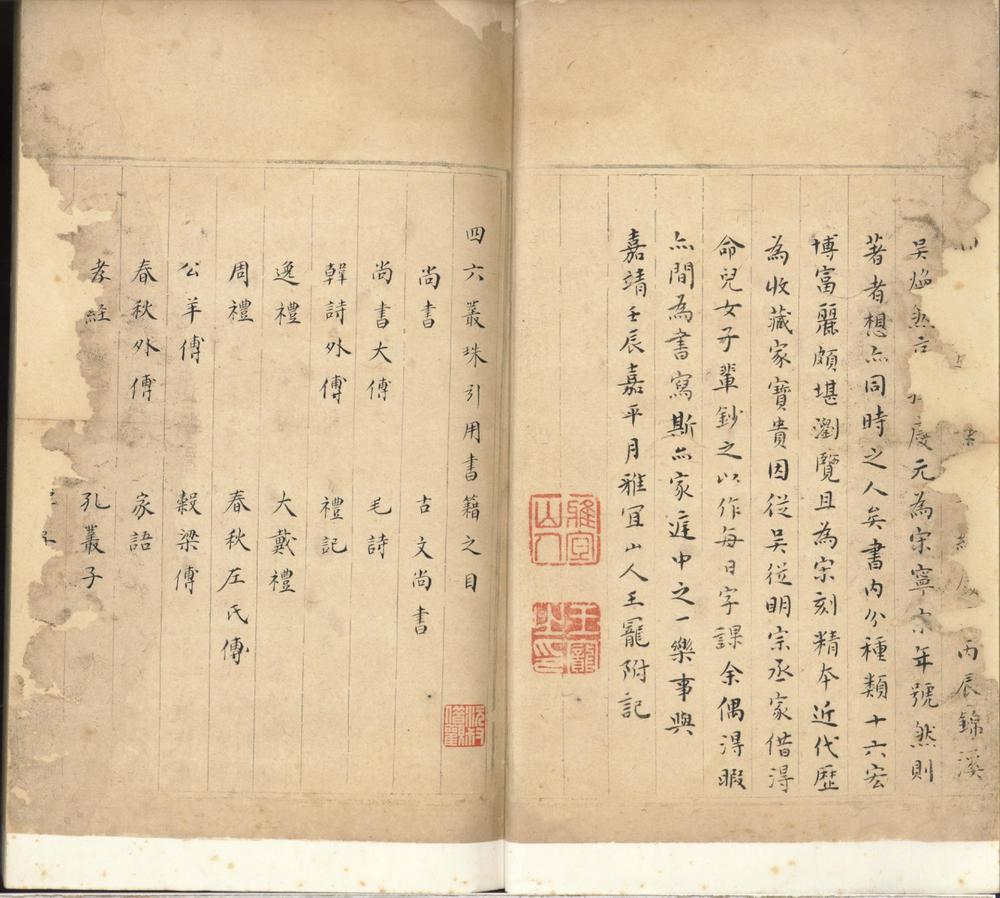 丙辰錦溪
吳煥然言 慶元為宋寧宗年號然則
著者想亦同時之人矣書內分種類十六宏
博富麗頗堪瀏覽且為宋刻精本近代歷
為收藏家寶貴因從吳從明宗丞家借得
命兒女子輩鈔之以作每日字課余偶得暇
亦間為書寫斯亦家庭中之一樂事與
嘉靖壬辰嘉平月雅宜山人王寵附記
雅宜山人
王寵
四六叢珠引用書籍之目
尚書 古文尚書
尚書大傅 毛詩
韓詩外傅 禮記
逸禮 大戴禮
周禮 春秋左氏傅
公羊傅 穀梁傅
春秋外傅 家語
孝経 孔叢子